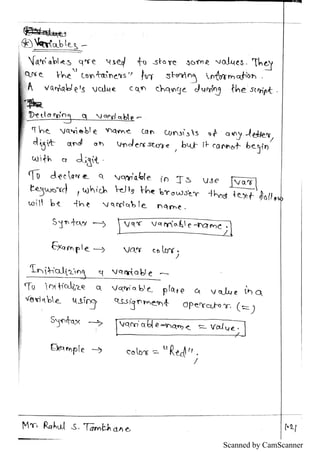 * Variables -
Variables are used to store some values. They
are the "containers" for storing information.
A variable's value can change during the script.
Declaring a variable -
The variable name can consists of any letter,
digit and an underscore, but it cannot begin
with a digit.
To declare a variable in JS use var
keyword, which tells the browser that text follow
will be the variable name.
Syntax → var variable-name;
Example → var color;
Initializing a variable -
To initialize a variable, place a value in a
variable using assignment operator. (=)
Syntax → variable-name = value;
Example → color = "Red";
Mr. Rahul S. Tamkhane
Scanned by CamScanner